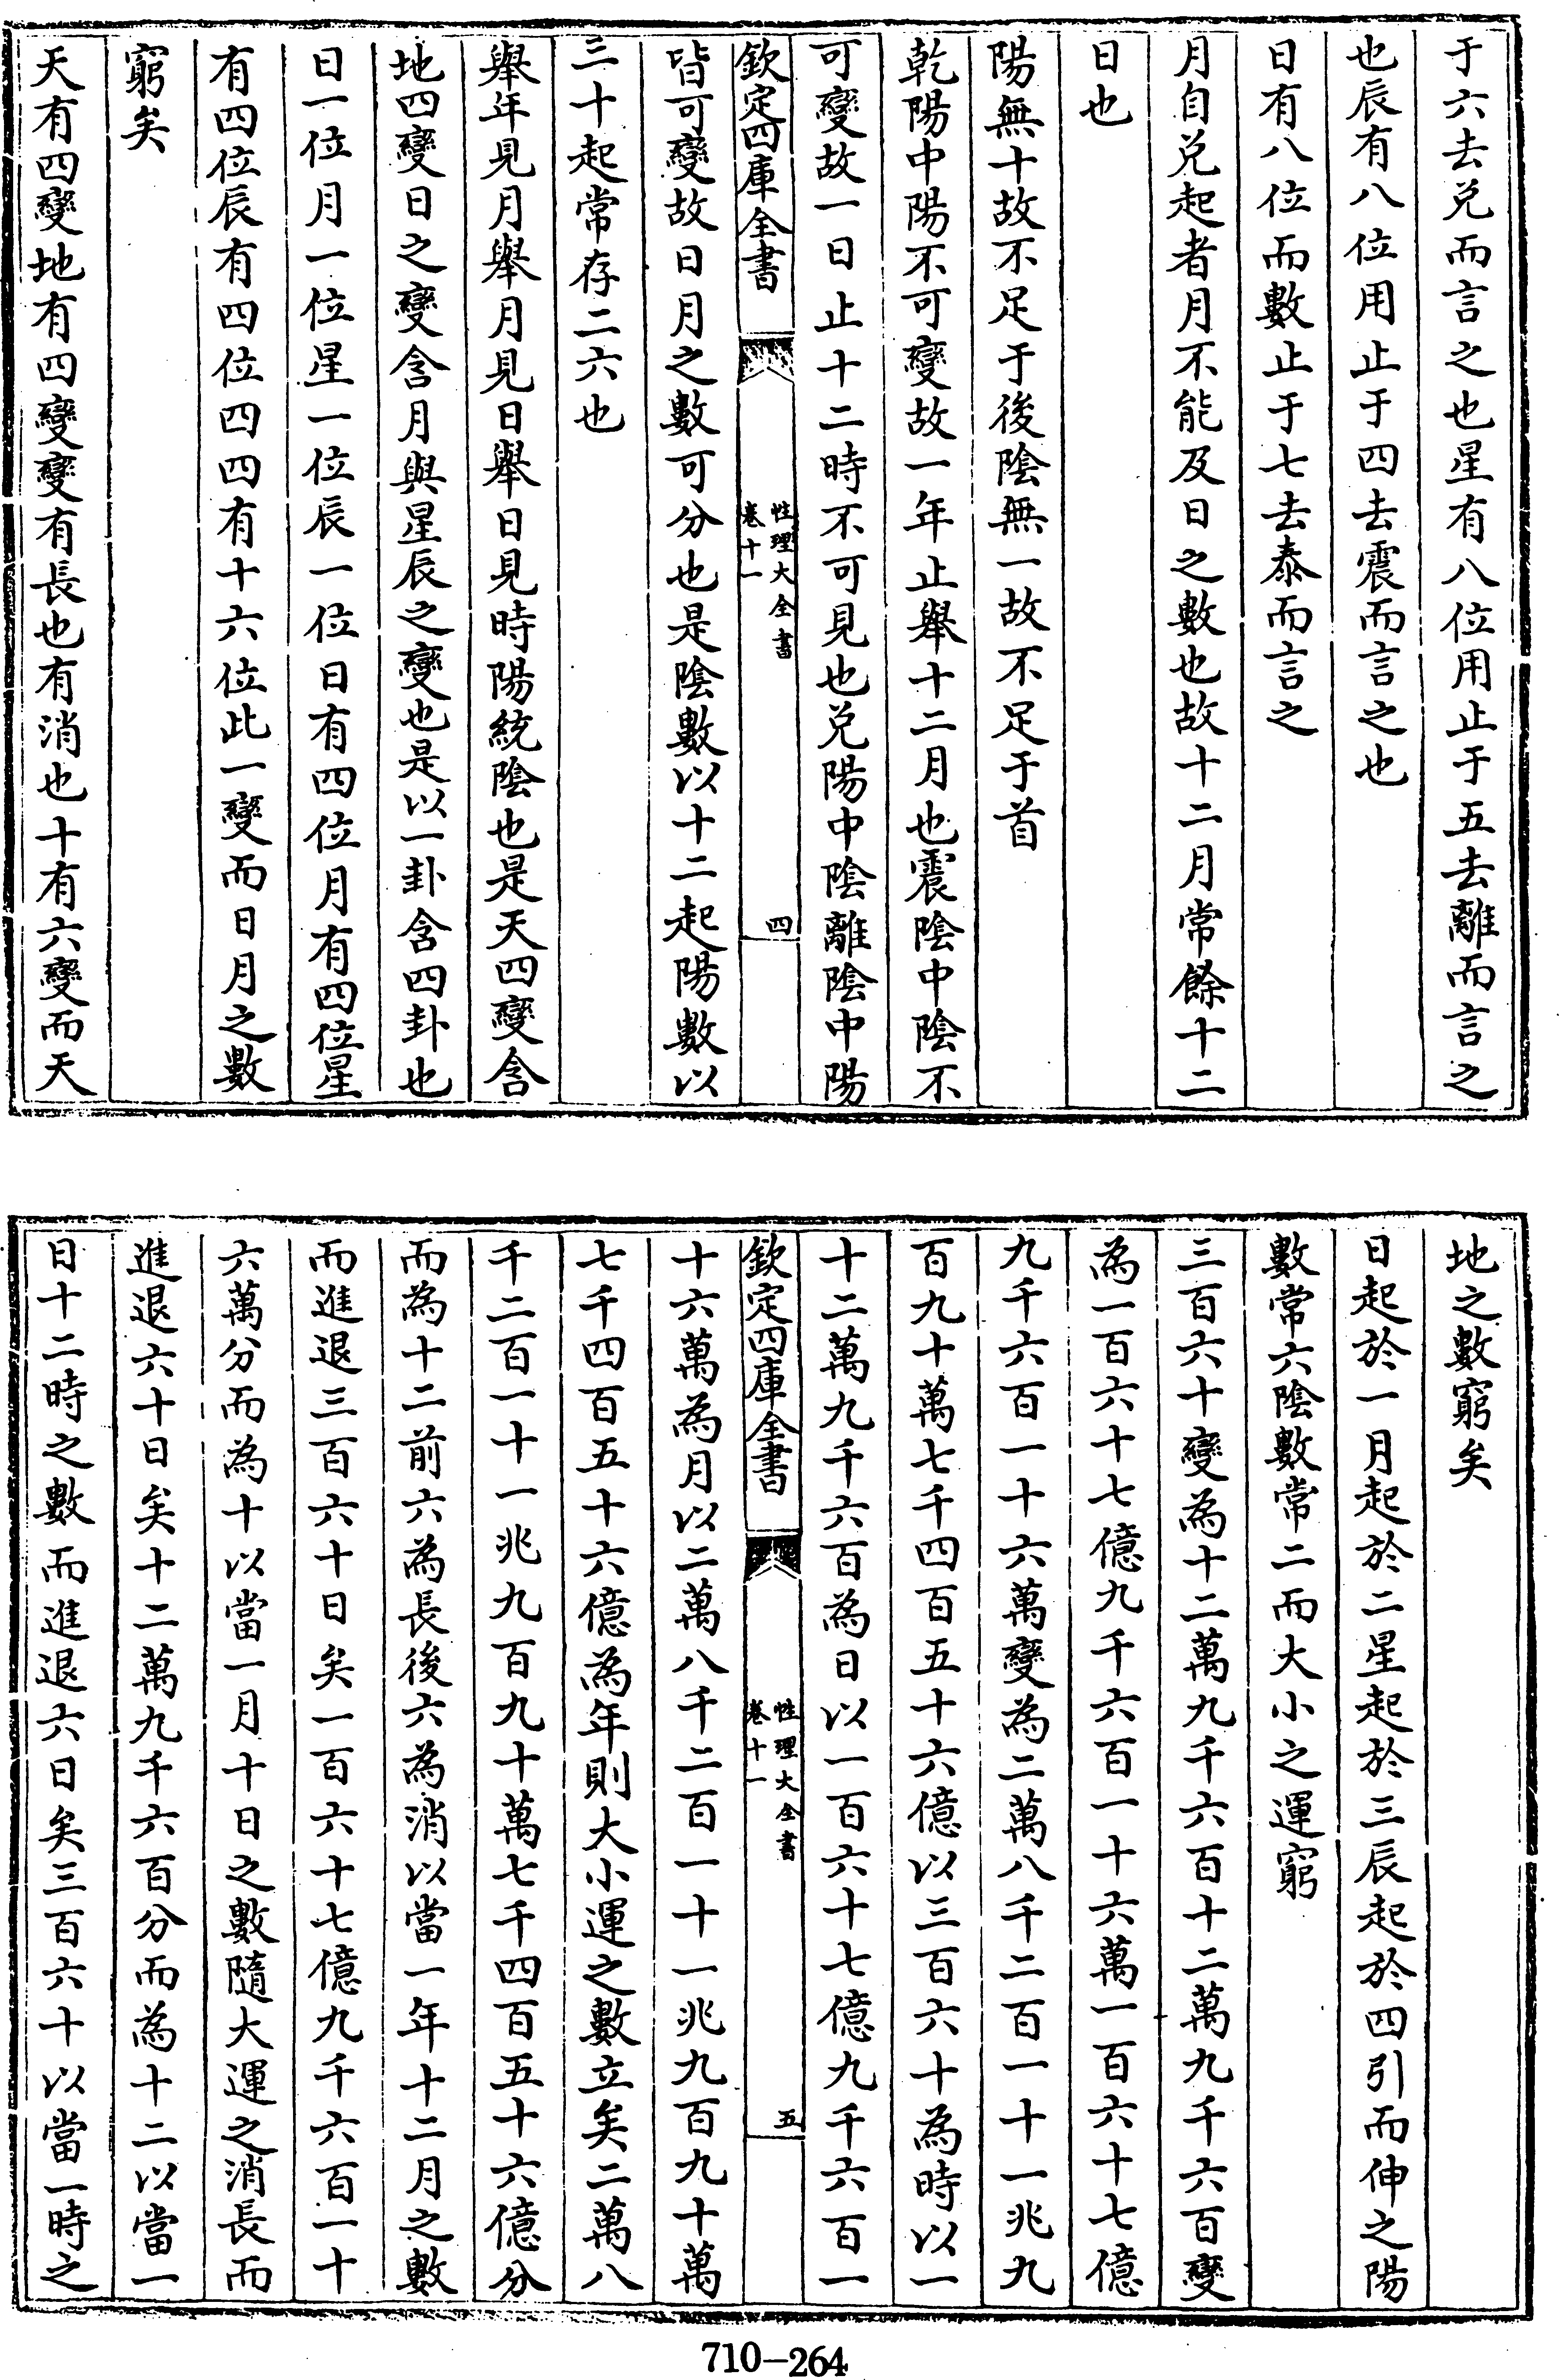 于六去兑而言之也星有八位用止于五去離而言之
也辰有八位用止于四去震而言之也
日有八位而數止于七去泰而言之
月自兑起者月不能及日之數也故十二月常餘十二
日也
陽無十故不足于後陰無一故不足于首
乾陽中陽不可變故一年止舉十二月也震陰中陰不
可變故一日止十二時不可見也兑陽中陰離陰中陽
欽定四庫全書
性理大全書
卷十一
四
皆可變故日月之數可分也是陰數以十二起陽數以
三十起常存二六也
舉年見月舉月見日舉日見時陽統陰也是天四變含
地四變日之變含月與星辰之變也是以一卦含四卦也
日一位月一位星一位辰一位日有四位月有四位星
有四位辰有四位四四有十六位此一變而日月之數
窮矣
天有四變地有四變變有長也有消也十有六變而天
地之數窮矣
日起於一月起於二星起於三辰起於四引而伸之陽
數常六陰數常二而大小之運窮
三百六十變為十二萬九千六百十二萬九千六百變
為一百六十七億九千六百一十六萬一百六十七億
九千六百一十六萬變為二萬八千二百一十一兆九
百九十萬七千四百五十六億以三百六十為時以一
十二萬九千六百為日以一百六十七億九千六百一
欽定四庫全書
性理大全書
卷十一
五
十六萬為月以二萬八千二百一十一兆九百九十萬
七千四百五十六億為年則大小運之數立矣二萬八
千二百一十一兆九百九十萬七千四百五十六億分
而為十二前六為長後六為消以當一年十二月之數
而進退三百六十日矣一百六十七億九千六百一十
六萬分而為十以當一月十日之數隨大運之消長而
進退六十日矣十二萬九千六百分而為十二以當一
日十二時之數而進退六日矣三百六十以當一時之
710-264